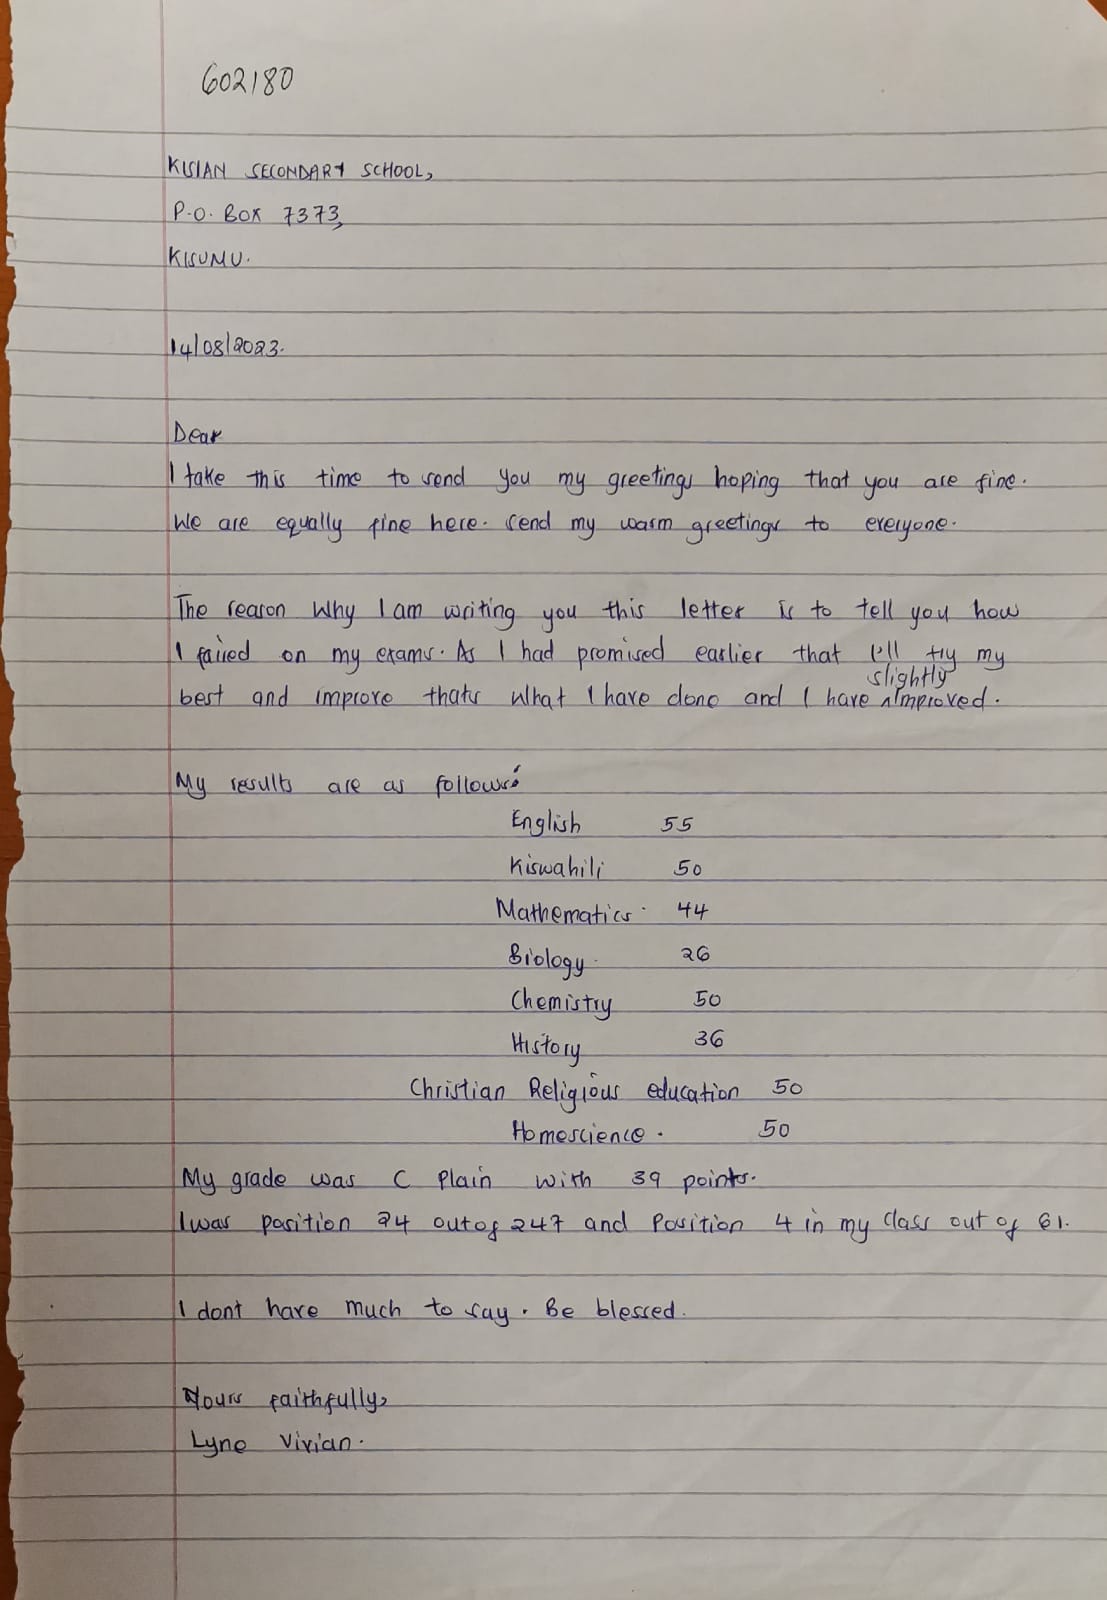 602180
KISIAN SECONDARY SCHOOL,
P.O. BOX 7373,
KISUMU.
14/08/2023.
Dear
I take this time to send you my greetings hoping that you are fine.
We are equally fine here. Send my warm greetings to everyone.
The reason why I am writing you this letter is to tell you how
I faired on my exams. As I had promised earlier that I'll try my
slightly
best and improve thats what I have done and I have ^improved.
My results are as follows:
English 55
Kiswahili 50
Mathematics. 44
Biology. 26
Chemistry 50
History 36
Christian Religious education 50
Homescience. 50
My grade was C Plain with 39 points.
I was position 24 out of 247 and Position 4 in my class out of 61.
I dont have much to say. Be blessed.
Yours faithfully,
Lyne Vivian.